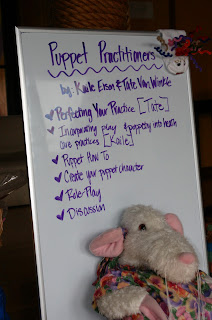 Puppet Practitioners
by: Kaile Eison & Tate Van Winkle
✓ Perfecting Your Practice [Tate]
✓ Incorporating play & puppetry into health
care practices [Kaile]
✓ Puppet How To
✓ Create your puppet character
✓ Role-Play
✓ Discussion